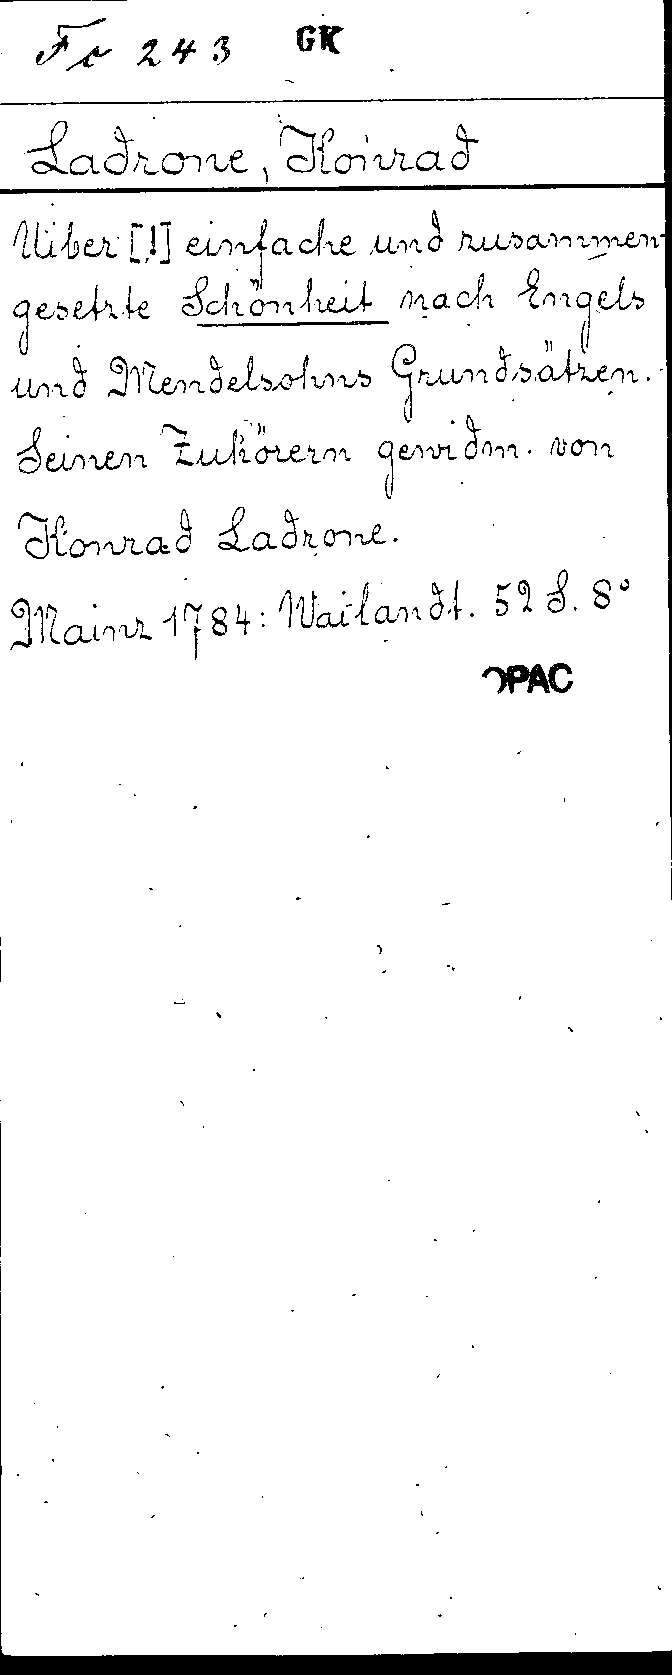 Fc 243 GK
Ladrone, Konrad
Uiber [!] einfache und zusammen-
gesetzte Schönheit nach Engels
und Mendelsohns Grundsätzen.
Seinen Zuhörern gewidm. von
Konrad Ladrone.
Mainz 1784: Wailandt. 52 S. 8°
OPAC